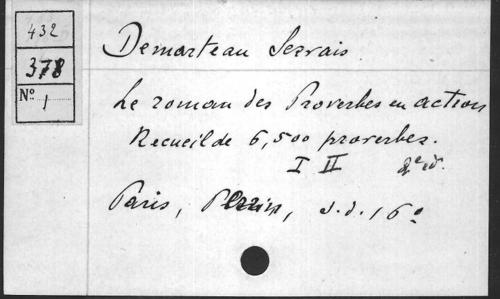 432
378
Nº 1
Demarteau Servais
Le roman des Proverbes en action
Recueil de 6,500 proverbes.
I II 2e éd.
Paris, Perrin, s.d. 16º